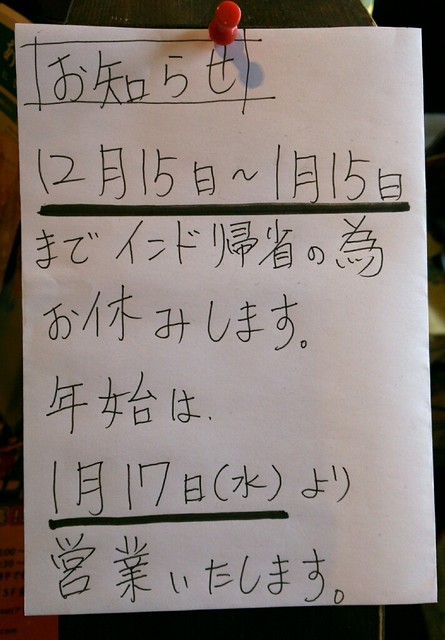 お知らせ
12月15日～1月15日
までインド帰省の為
お休みします。
年始は、
1月17日(水)より
営業いたします。